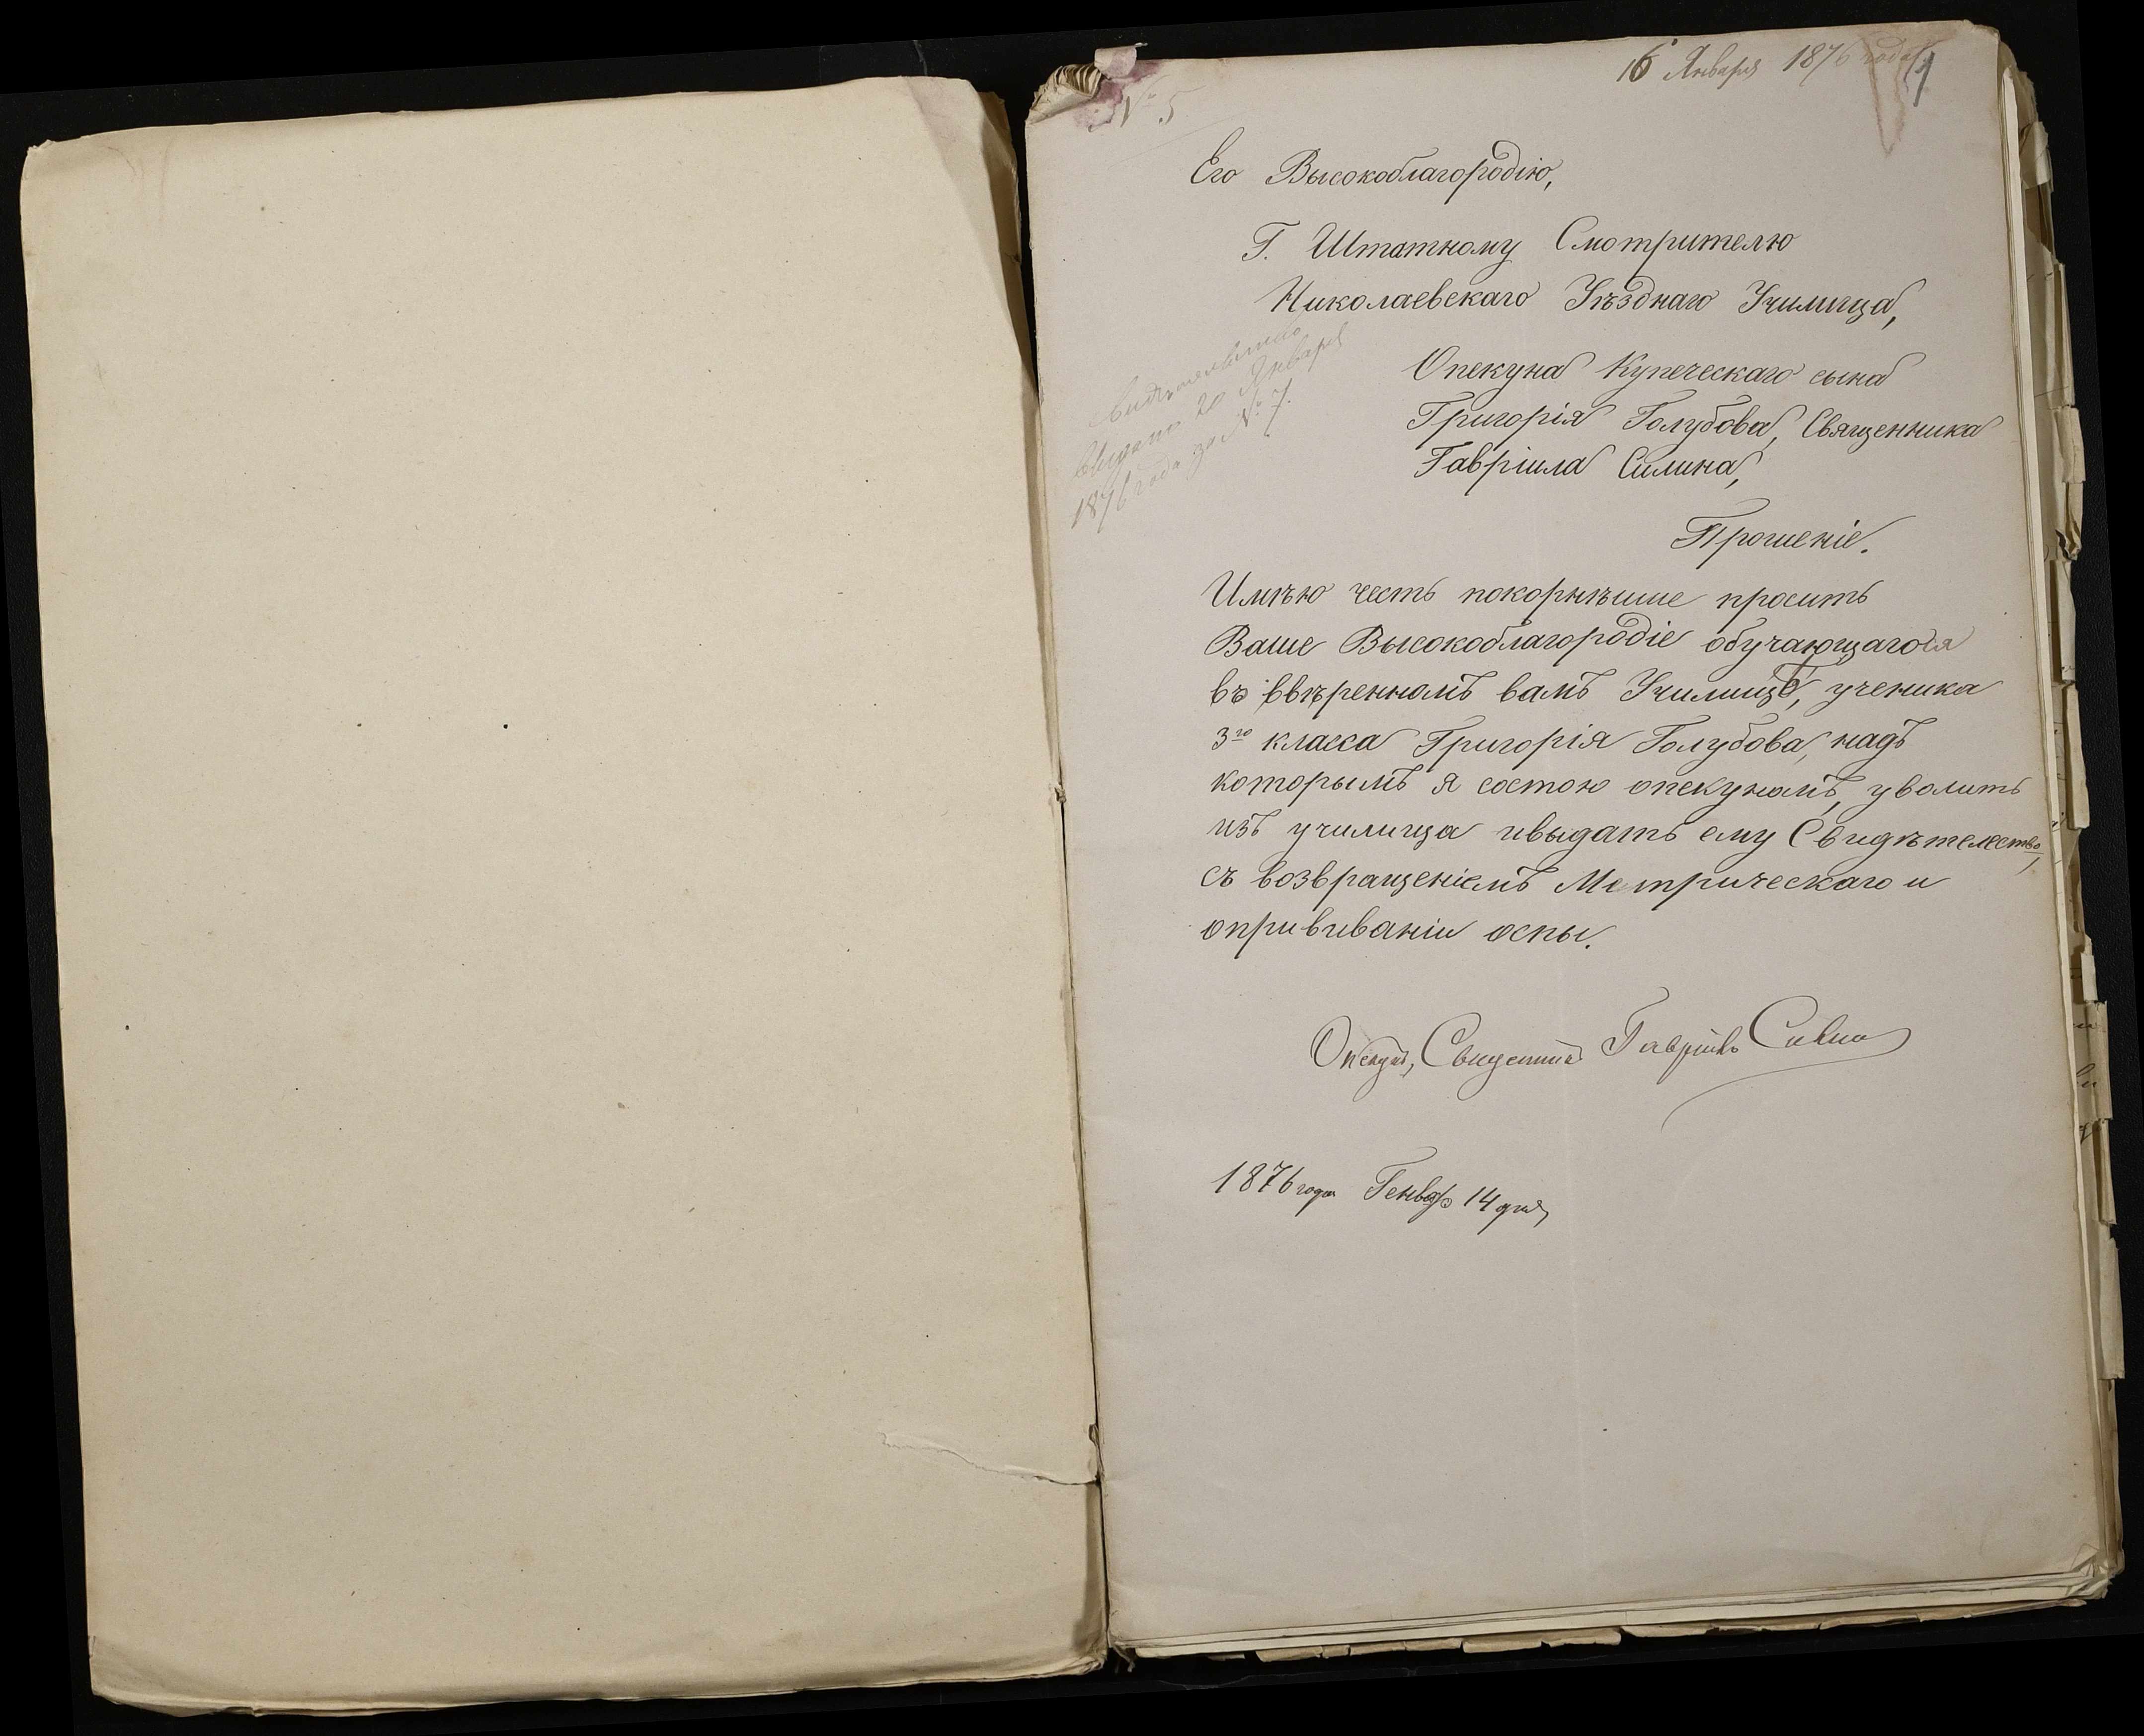 16 Января 1876 года
1
№ 5
Его Высокоблагородію,
Г. Штатному Смотрителю
Николаевскаго Уѣзднаго Училища,
Свидѣтельство
выдано 20 Января
1876 года за № 7.
Опекуна Купеческаго сына
Григорія Голубова, Священника
Гавріила Силина,
Прошеніе.
Имѣю честь покорнѣише просить
Ваше Высокоблагородіе обучающагося
въ ввѣренномъ вамъ Училищѣ, ученика
3го класса Григорія Голубова, надъ
которымъ я состою опекуномъ, уволить
изъ училища ивыдать ему Свидѣтелество,
съ возвращеніемъ Метрическаго и
опрививаніи оспы.
Опекунъ, Священникъ Гавріилъ Силин
1876 года Генвар 14 дня